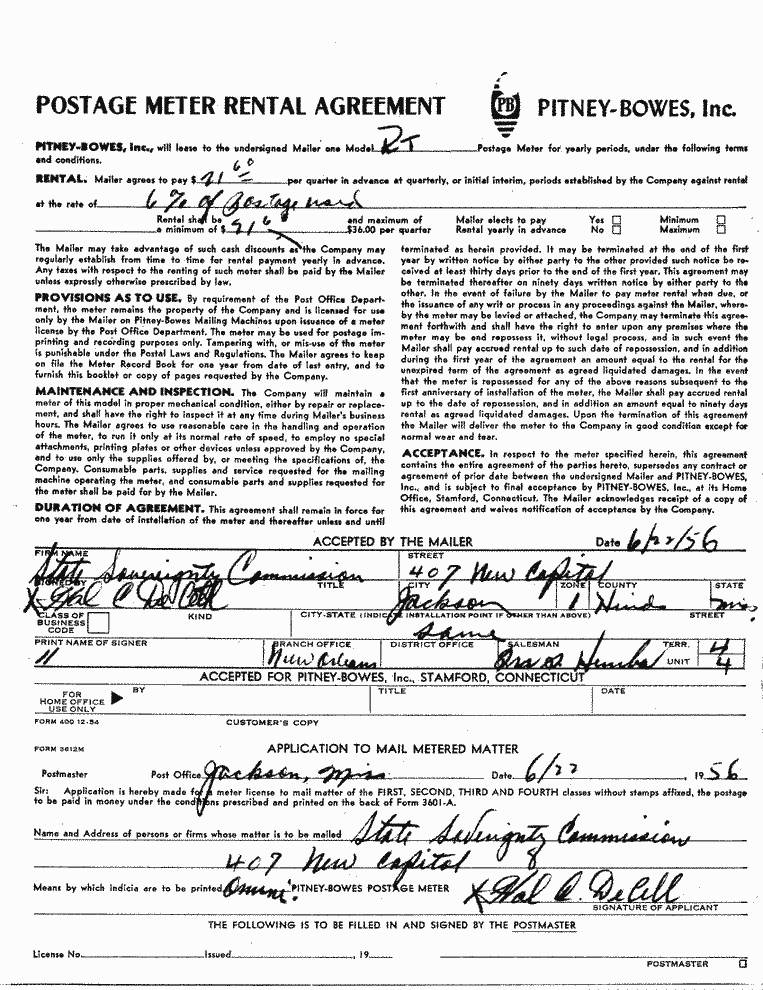 POSTAGE METER RENTAL AGREEMENT PB PITNEY-BOWES, Inc.
PITNEY-BOWES, Inc., will lease to the undersigned Mailer one Model RT Postage Meter for yearly periods, under the following terms
and conditions.
RENTAL. Mailer agrees to pay $ 21 60 per quarter in advance at quarterly, or initial interim, periods established by the Company against rental
at the rate of 6% of postage used
Rental shall be and maximum of Mailer elects to pay Yes ☐ Minimum ☐
a minimum of $ 21 60 $36.00 per quarter Rental yearly in advance No ☐ Maximum ☐
The Mailer may take advantage of such cash discounts as the Company
regularly establish from time to time for rental payment yearly in advance.
Any taxes with respect to the renting of such meter shall be paid by the Mailer
unless expressly otherwise prescribed by law.
PROVISIONS AS TO USE. By requirement of the Post Office Depart-
ment, the meter remains the property of the Company and is licensed for use
only by the Mailer on Pitney-Bowes Mailing Machines upon issuance of a meter
license by the Post Office Department. The meter may be used for postage im-
printing and recording purposes only. Tampering with, or mis-use of the meter
is punishable under the Postal Laws and Regulations. The Mailer agrees to keep
on file the Meter Record Book for one year from date of last entry, and to
furnish this booklet or copy of pages requested by the Company.
MAINTENANCE AND INSPECTION. The Company will maintain a
meter of this model in proper mechanical condition, either by repair or replace-
ment, and shall have the right to inspect it at any time during Mailer's business
hours. The Mailer agrees to use reasonable care in the handling and operation
of the meter, to run it only at its normal rate of speed, to employ no special
attachments, printing plates or other devices unless approved by the Company,
and to use only the supplies offered by, or meeting the specifications of, the
Company. Consumable parts, supplies and service requested for the mailing
machine operating the meter, and consumable parts and supplies requested for
the meter shall be paid for by the Mailer.
DURATION OF AGREEMENT. This agreement shall remain in force for
one year from date of installation of the meter and thereafter unless and until
terminated as herein provided. It may be terminated at the end of the first
year by written notice by either party to the other provided such notice be re-
ceived at least thirty days prior to the end of the first year. This agreement may
be terminated thereafter on ninety days written notice by either party to the
other. In the event of failure by the Mailer to pay meter rental when due, or
the issuance of any writ or process in any proceedings against the Mailer, where-
by the meter may be levied or attached, the Company may terminate this agree-
ment forthwith and shall have the right to enter upon any premises where the
meter may be end repossess it, without legal process, and in such event the
Mailer shall pay accrued rental up to such date of repossession, and in addition
during the first year of the agreement an amount equal to the rental for the
unexpired term of the agreement as agreed liquidated damages. In the event
that the meter is repossessed for any of the above reasons subsequent to the
first anniversary of installation of the meter, the Mailer shall pay accrued rental
up to the date of repossession, and in addition an amount equal to ninety days
rental as agreed liquidated damages. Upon the termination of this agreement
the Mailer will deliver the meter to the Company in good condition except for
normal wear and tear.
ACCEPTANCE. In respect to the meter specified herein, this agreement
contains the entire agreement of the parties hereto, supersedes any contract or
agreement of prior date between the undersigned Mailer and PITNEY-BOWES,
Inc., and is subject to final acceptance by PITNEY-BOWES, Inc., at its Home
Office, Stamford, Connecticut. The Mailer acknowledges receipt of a copy of
this agreement and waives notification of acceptance by the Company.
ACCEPTED BY THE MAILER Date 6/22/56
FIRM NAME STREET
State Sovereignty Commission 407 New Capitol
SIGNED BY TITLE CITY ZONE COUNTY STATE
X Hal C DeCell Jackson 1 Hinds Miss.
CLASS OF BUSINESS CODE KIND CITY-STATE (INDICATE INSTALLATION POINT IF OTHER THAN ABOVE) STREET
same
PRINT NAME OF SIGNER BRANCH OFFICE DISTRICT OFFICE SALESMAN TERR. 4
" New Orleans UNIT 4
ACCEPTED FOR PITNEY-BOWES, Inc., STAMFORD, CONNECTICUT
FOR HOME OFFICE USE ONLY BY TITLE DATE
FORM 400 12-54 CUSTOMER'S COPY
FORM 3612M APPLICATION TO MAIL METERED MATTER
Postmaster Post Office Jackson, Miss Date 6/22 19 56
Sir: Application is hereby made for a meter license to mail matter of the FIRST, SECOND, THIRD AND FOURTH classes without stamps affixed, the postage
to be paid in money under the conditions prescribed and printed on the back of Form 3601-A.
Name and Address of persons or firms whose matter is to be mailed State Soverignty Commission
407 New Capitol
Means by which indicia are to be printed PITNEY-BOWES POSTAGE METER X Hal C. DeCell
SIGNATURE OF APPLICANT
THE FOLLOWING IS TO BE FILLED IN AND SIGNED BY THE POSTMASTER
License No. Issued , 19
POSTMASTER ☐